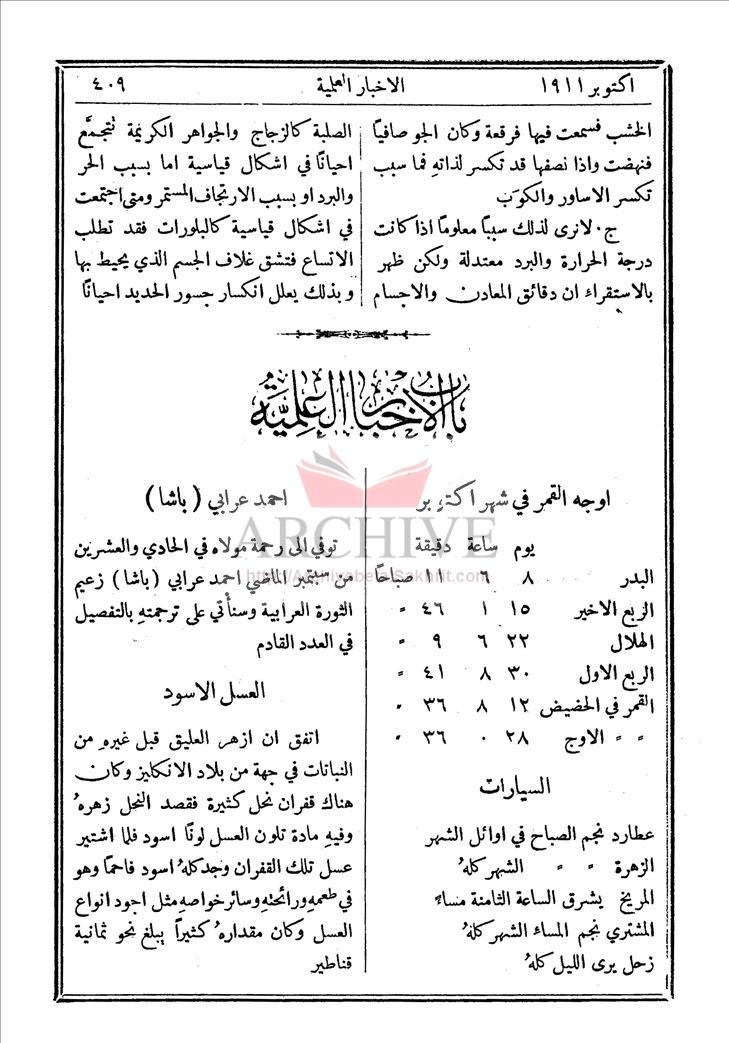 اكتوبر ١٩١١
الاخبار العلمية
٤٠٩
الخشب فسمعت فيها فرقعة وكان الجو صافياً
فنهضت واذا نصفها قد تكسر لذاته فما سبب
تكسر الاساور والكوَب
ج٠ لانرى لذلك سبباً معلوماً اذا كانت
درجة الحرارة والبرد معتدلة ولكن ظهر
بالاستقراء ان دقائق المعادن والاجسام
الصلبة كالزجاج والجواهر الكريمة تتجمَّع
احياناً في اشكال قياسية اما بسبب الحر
والبرد او بسبب الارتجاف المستمر ومتى اجتمعت
في اشكال قياسية كالبلورات فقد تطلب
الاتساع فتشق غلاف الجسم الذي يحيط بها
وبذلك يعلل انكسار جسور الحديد احياناً
باب الاخبار العلمية
اوجه القمر في شهر اكتوبر
يوم ساعة دقيقة
البدر ٨ ٦ ١١ صباحاً
الربع الاخير ١٥ ١ ٤٦ "
الهلال ٢٢ ٦ ٩ "
الربع الاول ٣٠ ٨ ٤١ "
القمر في الحضيض ١٢ ٨ ٣٦ "
" " الاوج ٢٨ ٠ ٣٦ "
السيارات
عطارد نجم الصباح في اوائل الشهر
الزهرة " " الشهر كلهُ
المريخ يشرق الساعة الثامنة مساءً
المشتري نجم المساء الشهر كلهُ
زحل يرى الليل كلهُ
احمد عرابي (باشا)
توفي الى رحمة مولاه في الحادي والعشرين
من سبتمبر الماضي احمد عرابي (باشا) زعيم
الثورة العرابية وسنأتي على ترجمتهِ بالتفصيل
في العدد القادم
العسل الاسود
اتفق ان ازهر العليق قبل غيرهِ من
النباتات في جهة من بلاد الانكليز وكان
هناك قفران نحل كثيرة فقصد النحل زهرهُ
وفيهِ مادة تلون العسل لوناً اسود فلما اشتير
عسل تلك القفران وجد كلهُ اسود فاحماً وهو
في طعمهِ ورائحتهِ وسائر خواصهِ مثل اجود انواع
العسل وكان مقدارهُ كثيراً يبلغ نحو ثمانية
قناطير
ARCHIVE
http://Archivebeta.Sakhrit.com